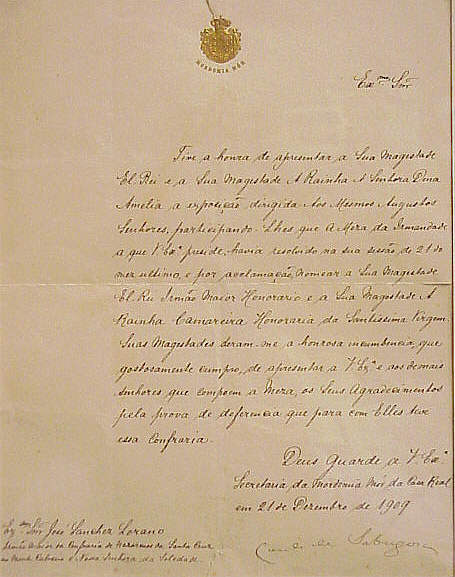 MORDOMIA MÓR
Ex.mo Snr.
Tive a honra de apresentar a Sua Magestade
El Rei e a Sua Magestade A Rainha A Senhora Dona
Amelia a exposição dirigida Aos Mesmos Augustos
Senhores, participando-Lhes que A Meza da Irmandade
a que V. Ex.ª preside, havia resolvido na sua sessão de 21 do
mez ultimo, e por acclamação, nomear a Sua Magestade
El Rei Irmão Maior Honorario e a Sua Magestade A
Rainha Camareira Honoraria da Santissima Virgem.
Suas Magestades deram-me a honrosa incumbencia, que
gostosamente cumpro, de apresentar a V. Ex.ª e aos demais
senhores que compoem a Meza, os Seus Agradecimentos
pela prova de deferencia que para com Elles teve
essa Confraria.
Deus Guarde a V. Ex.ª
Secretaria da Mordomia Mór da Casa Real
em 21 de Dezembro de 1909
Conde de Sabugosa
Ex.mo Snr. José Sanchez Lozano
da Confraria de Nazarenos da Santa Cruz
no Monte Calvario e Nossa Senhora da Soledade.